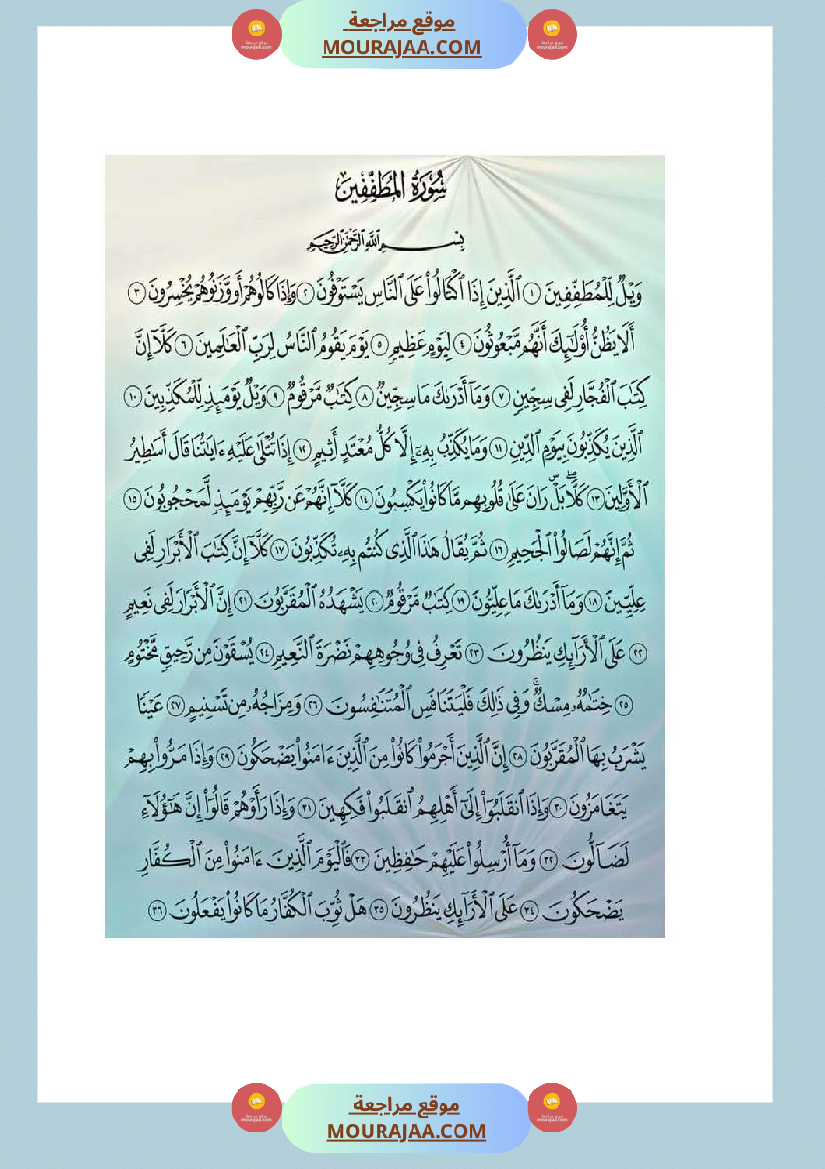 موقع مراجعة
MOURAJAA.COM
موقع مراجعة
mourajaa.com
موقع مراجعة
mourajaa.com
سُورَةُ المُطَفِّفِينَ
بِسْمِ اللَّهِ الرَّحْمَٰنِ الرَّحِيمِ
وَيْلٌ لِّلْمُطَفِّفِينَ ١ ٱلَّذِينَ إِذَا ٱكْتَالُوا۟ عَلَى ٱلنَّاسِ يَسْتَوْفُونَ ٢ وَإِذَا كَالُوهُمْ أَو وَّزَنُوهُمْ يُخْسِرُونَ ٣
أَلَا يَظُنُّ أُو۟لَٰٓئِكَ أَنَّهُم مَّبْعُوثُونَ ٤ لِيَوْمٍ عَظِيمٍ ٥ يَوْمَ يَقُومُ ٱلنَّاسُ لِرَبِّ ٱلْعَٰلَمِينَ ٦ كَلَّآ إِنَّ
كِتَٰبَ ٱلْفُجَّارِ لَفِى سِجِّينٍ ٧ وَمَآ أَدْرَىٰكَ مَا سِجِّينٌ ٨ كِتَٰبٌ مَّرْقُومٌ ٩ وَيْلٌ يَوْمَئِذٍ لِّلْمُكَذِّبِينَ ١٠
ٱلَّذِينَ يُكَذِّبُونَ بِيَوْمِ ٱلدِّينِ ١١ وَمَا يُكَذِّبُ بِهِۦٓ إِلَّا كُلُّ مُعْتَدٍ أَثِيمٍ ١٢ إِذَا تُتْلَىٰ عَلَيْهِ ءَايَٰتُنَا قَالَ أَسَٰطِيرُ
ٱلْأَوَّلِينَ ١٣ كَلَّا ۖ بَلْ ۜ رَانَ عَلَىٰ قُلُوبِهِم مَّا كَانُوا۟ يَكْسِبُونَ ١٤ كَلَّآ إِنَّهُمْ عَن رَّبِّهِمْ يَوْمَئِذٍ لَّمَحْجُوبُونَ ١٥
ثُمَّ إِنَّهُمْ لَصَالُوا۟ ٱلْجَحِيمِ ١٦ ثُمَّ يُقَالُ هَٰذَا ٱلَّذِى كُنتُم بِهِۦ تُكَذِّبُونَ ١٧ كَلَّآ إِنَّ كِتَٰبَ ٱلْأَبْرَارِ لَفِى
عِلِّيِّينَ ١٨ وَمَآ أَدْرَىٰكَ مَا عِلِّيُّونَ ١٩ كِتَٰبٌ مَّرْقُومٌ ٢٠ يَشْهَدُهُ ٱلْمُقَرَّبُونَ ٢١ إِنَّ ٱلْأَبْرَارَ لَفِى نَعِيمٍ
٢٢ عَلَى ٱلْأَرَآئِكِ يَنظُرُونَ ٢٣ تَعْرِفُ فِى وُجُوهِهِمْ نَضْرَةَ ٱلنَّعِيمِ ٢٤ يُسْقَوْنَ مِن رَّحِيقٍ مَّخْتُومٍ
٢٥ خِتَٰمُهُۥ مِسْكٌ ۚ وَفِى ذَٰلِكَ فَلْيَتَنَافَسِ ٱلْمُتَنَٰفِسُونَ ٢٦ وَمِزَاجُهُۥ مِن تَسْنِيمٍ ٢٧ عَيْنًا
يَشْرَبُ بِهَا ٱلْمُقَرَّبُونَ ٢٨ إِنَّ ٱلَّذِينَ أَجْرَمُوا۟ كَانُوا۟ مِنَ ٱلَّذِينَ ءَامَنُوا۟ يَضْحَكُونَ ٢٩ وَإِذَا مَرُّوا۟ بِهِمْ
يَتَغَامَزُونَ ٣٠ وَإِذَا ٱنقَلَبُوٓا۟ إِلَىٰٓ أَهْلِهِمُ ٱنقَلَبُوا۟ فَكِهِينَ ٣١ وَإِذَا رَأَوْهُمْ قَالُوٓا۟ إِنَّ هَٰٓؤُلَآءِ
لَضَآلُّونَ ٣٢ وَمَآ أُرْسِلُوا۟ عَلَيْهِمْ حَٰفِظِينَ ٣٣ فَٱلْيَوْمَ ٱلَّذِينَ ءَامَنُوا۟ مِنَ ٱلْكُفَّارِ
يَضْحَكُونَ ٣٤ عَلَى ٱلْأَرَآئِكِ يَنظُرُونَ ٣٥ هَلْ ثُوِّبَ ٱلْكُفَّارُ مَا كَانُوا۟ يَفْعَلُونَ ٣٦
موقع مراجعة
MOURAJAA.COM
موقع مراجعة
mourajaa.com
موقع مراجعة
mourajaa.com